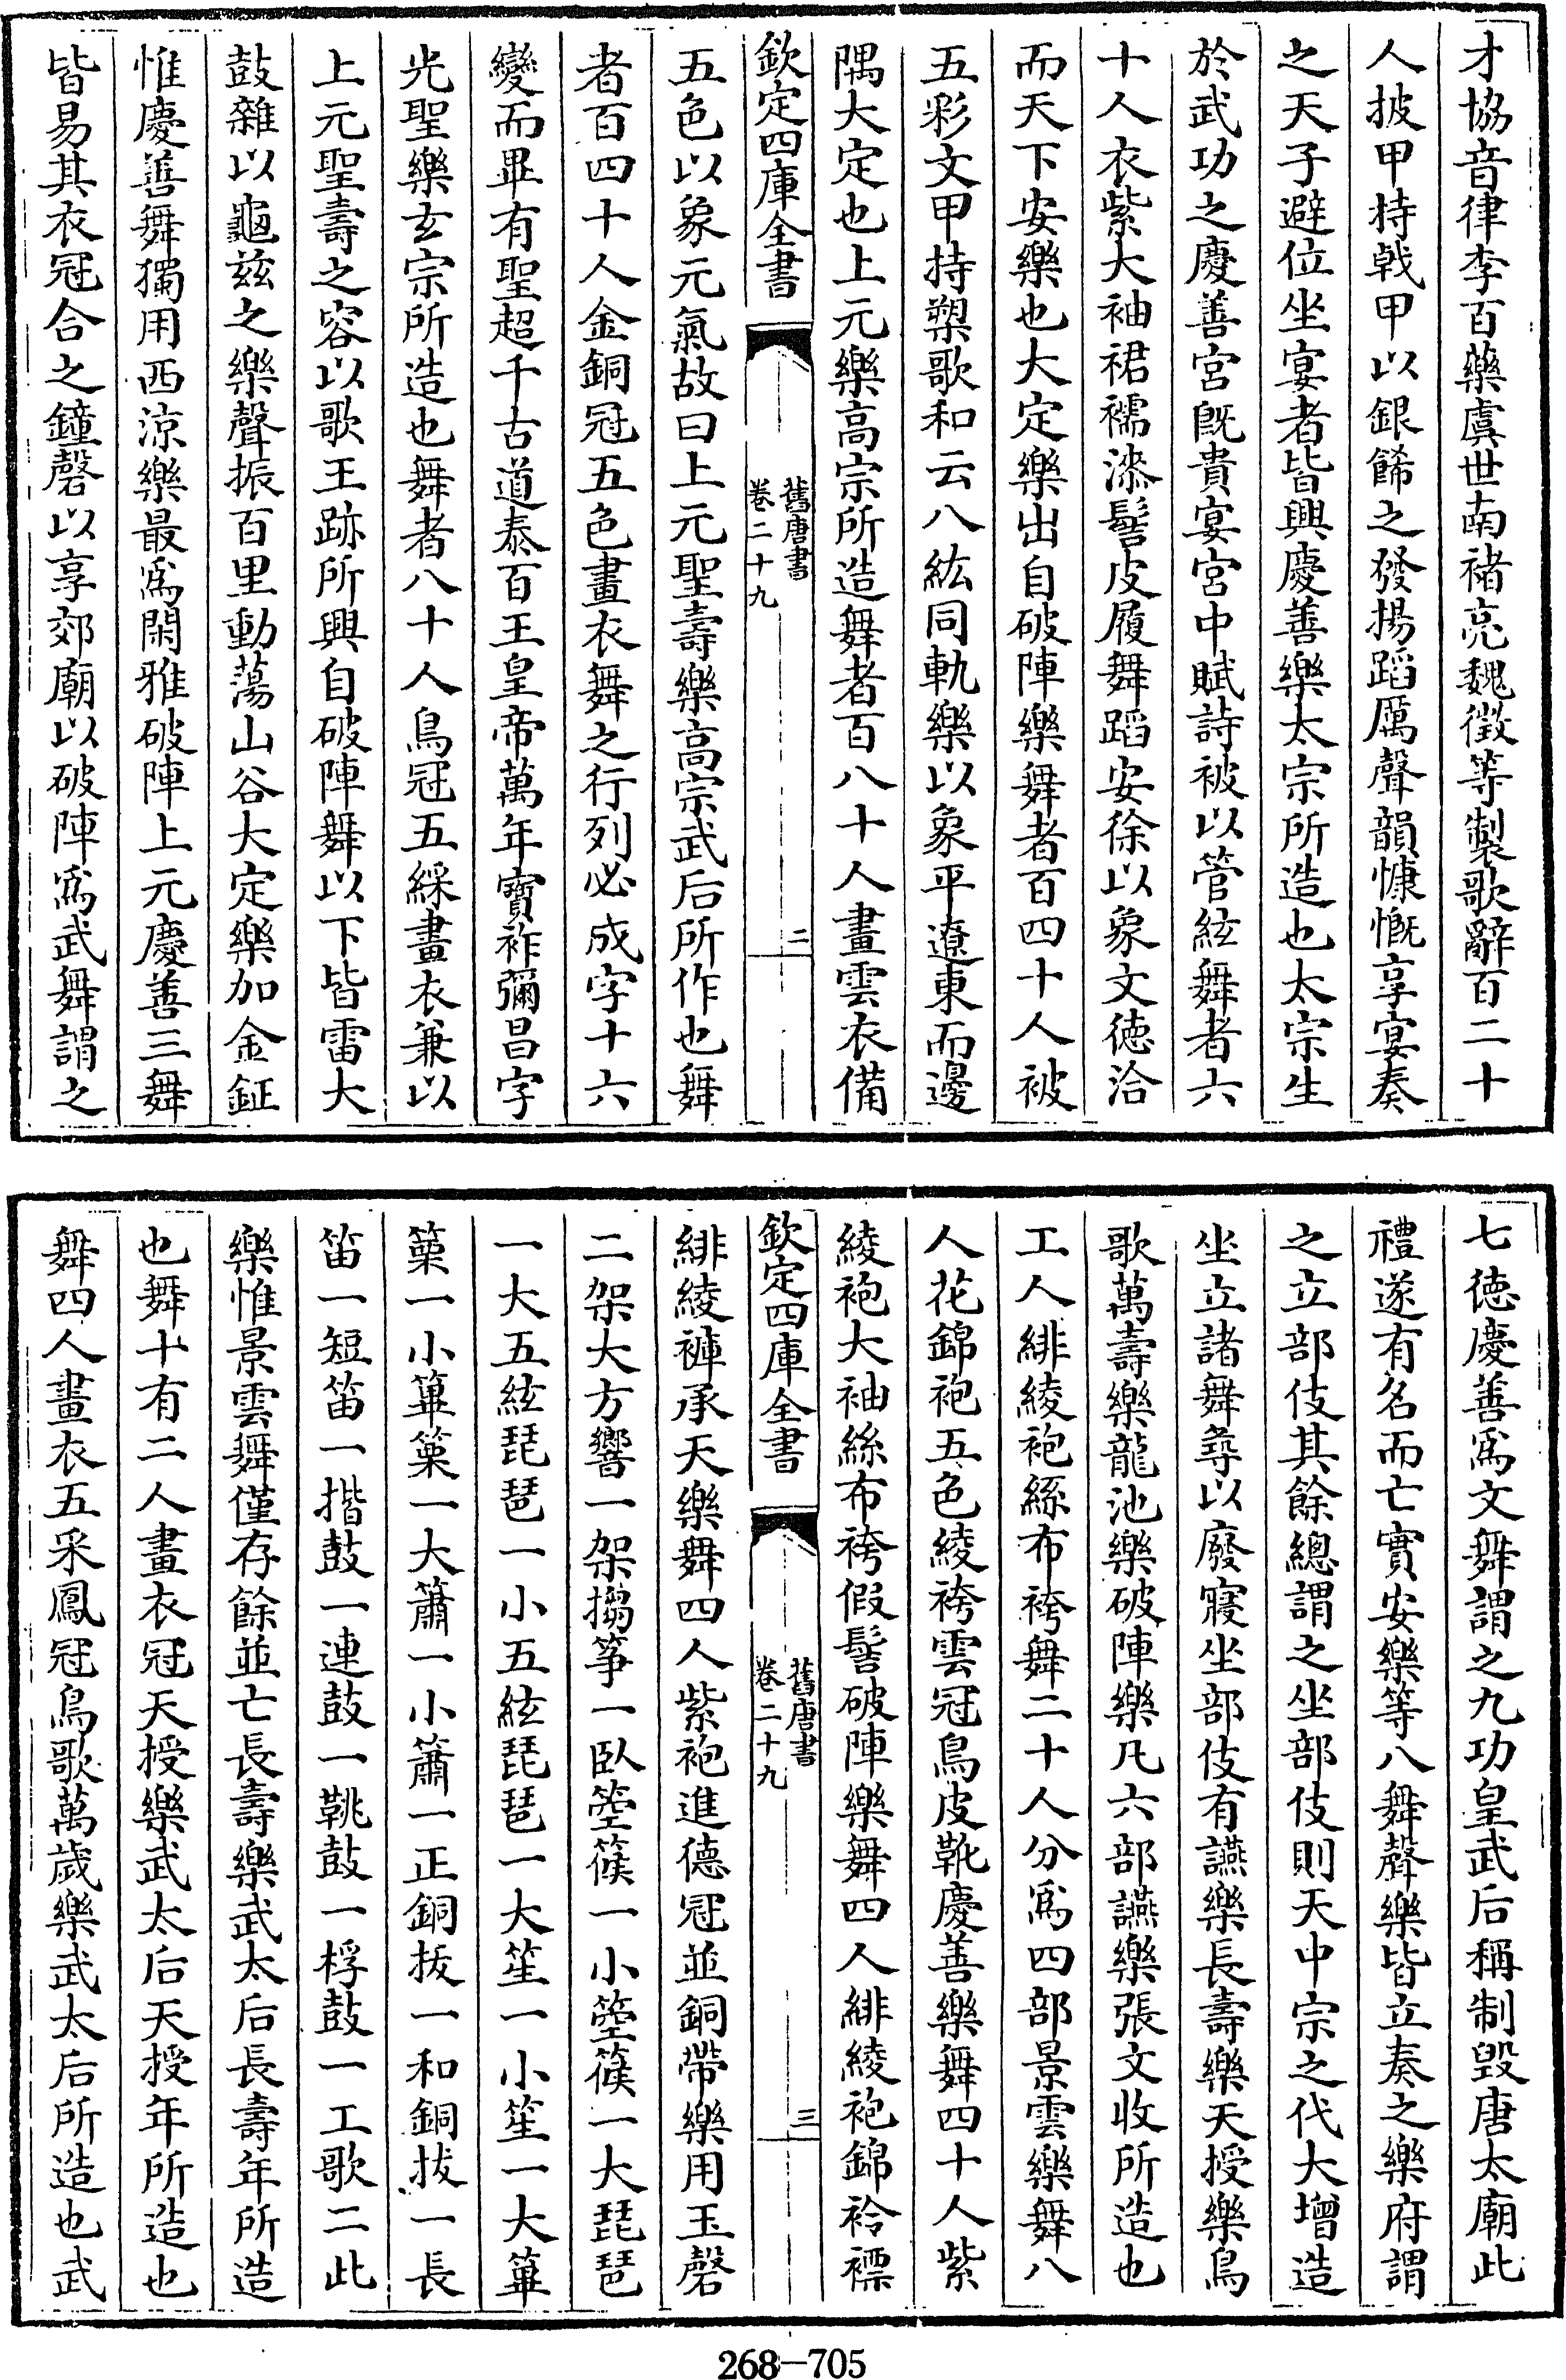 才協音律李百藥虞世南褚亮魏徵等製歌辭百二十
人披甲持戟甲以銀飾之發揚蹈厲聲韻慷慨享宴奏
之天子避位坐宴者皆興慶善樂太宗所造也太宗生
於武功之慶善宮既貴宴宮中賦詩被以管絃舞者六
十人衣紫大袖裙襦漆髻皮履舞蹈安徐以象文德洽
而天下安樂也大定樂出自破陣樂舞者百四十人被
五彩文甲持槊歌和云八紘同軌樂以象平遼東而邊
隅大定也上元樂高宗所造舞者百八十人畫雲衣備
欽定四庫全書
舊唐書
卷二十九
二
五色以象元氣故曰上元聖壽樂高宗武后所作也舞
者百四十人金銅冠五色畫衣舞之行列必成字十六
變而畢有聖超千古道泰百王皇帝萬年寶祚彌昌字
光聖樂玄宗所造也舞者八十人鳥冠五綵畫衣兼以
上元聖壽之容以歌王跡所興自破陣舞以下皆雷大
鼓雜以龜兹之樂聲振百里動蕩山谷大定樂加金鉦
惟慶善舞獨用西涼樂最爲閑雅破陣上元慶善三舞
皆易其衣冠合之鐘磬以享郊廟以破陣爲武舞謂之
七德慶善爲文舞謂之九功皇武后稱制毀唐太廟此
禮遂有名而亡實安樂等八舞聲樂皆立奏之樂府謂
之立部伎其餘總謂之坐部伎則天中宗之代大增造
坐立諸舞尋以廢寢坐部伎有讌樂長壽樂天授樂鳥
歌萬壽樂龍池樂破陣樂凡六部讌樂張文收所造也
工人緋綾袍絲布袴舞二十人分爲四部景雲樂舞八
人花錦袍五色綾袴雲冠鳥皮靴慶善樂舞四十人紫
綾袍大袖絲布袴假髻破陣樂舞四人緋綾袍錦衿褾
欽定四庫全書
舊唐書
卷二十九
三
緋綾褲承天樂舞四人紫袍進德冠並銅帶樂用玉磬
二架大方響一架搊筝一臥箜篌一小箜篌一大琵琶
一大五絃琵琶一小五絃琵琶一大笙一小笙一大篳
篥一小篳篥一大簫一小簫一正銅拔一和銅拔一長
笛一短笛一揩鼓一連鼓一鞉鼓一桴鼓一工歌二此
樂惟景雲舞僅存餘並亡長壽樂武太后長壽年所造
也舞十有二人畫衣冠天授樂武太后天授年所造也
舞四人畫衣五采鳳冠鳥歌萬歲樂武太后所造也武
268-705